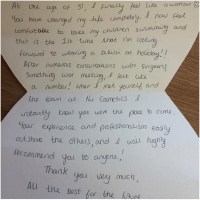 At the age of 31, I finally feel like a woman &
You have changed my life completely. I now feel
comfortable to take my children swimming and
this is the 1st time that I'm looking
forward to wearing a bikini on holiday!!
After numerous consultations with surgeons
Something was missing, I felt like
a number! When I met yourself and
the team at the Cosmetic I
instantly knew you were the place to come.
Your experience and professionalism easily
outshone the others, and I will highly
Recommend you to anyone!
Thank you very much,
All the best for the future